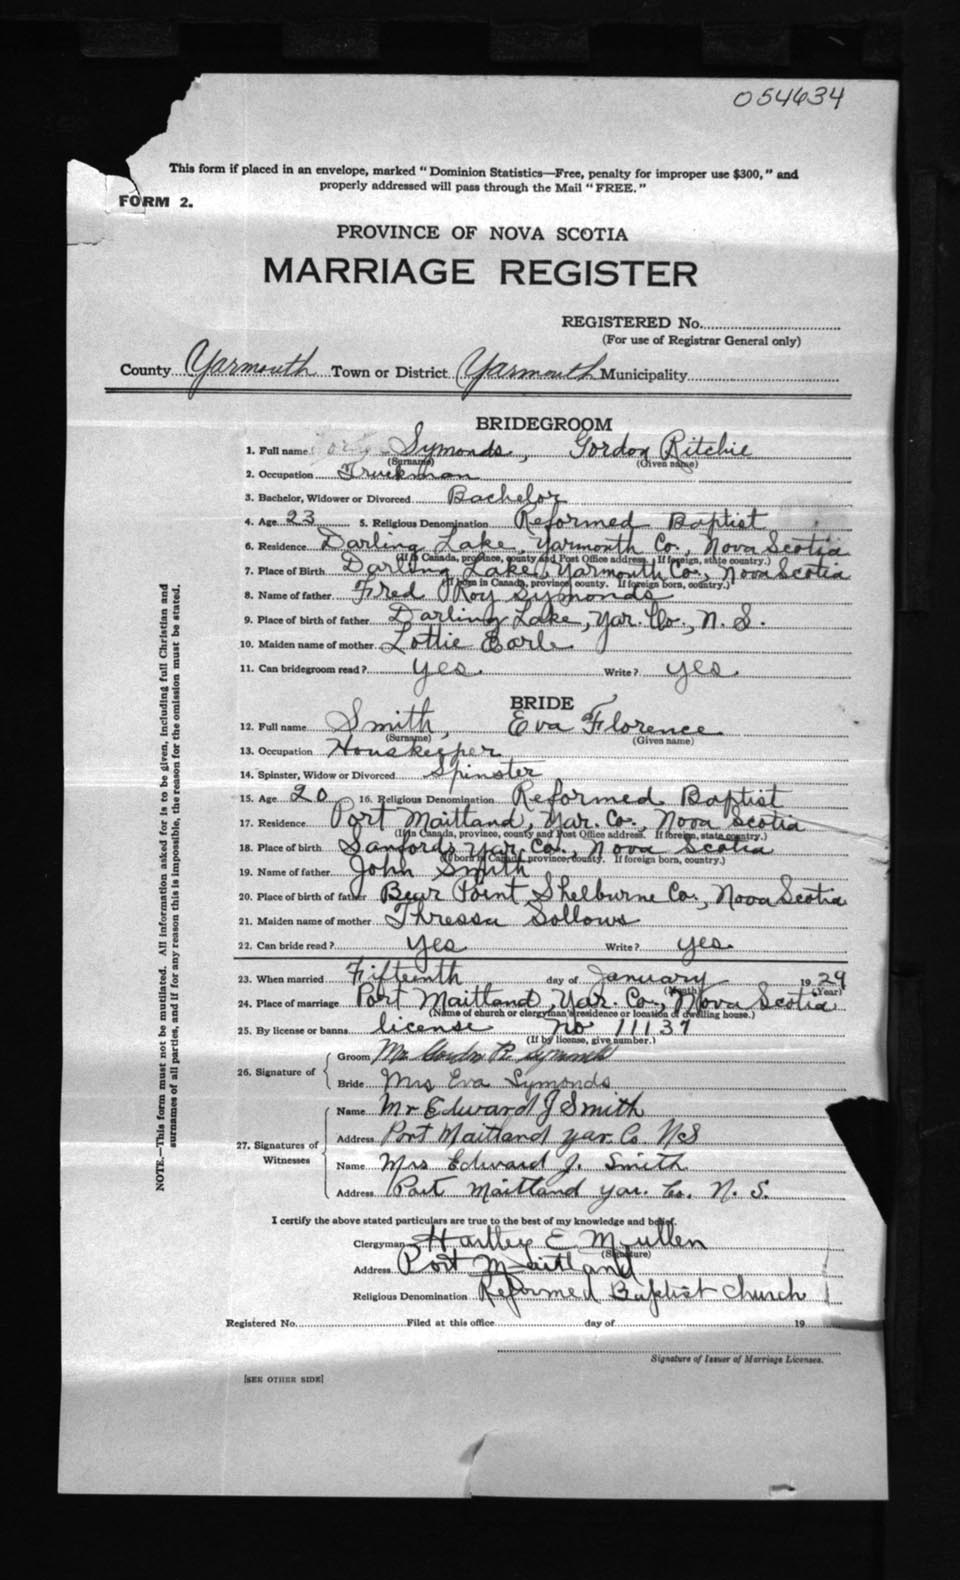 054634
This form if placed in an envelope, marked "Dominion Statistics—Free, penalty for improper use $300," and
properly addressed will pass through the Mail "FREE."
FORM 2.
PROVINCE OF NOVA SCOTIA
MARRIAGE REGISTER
REGISTERED No.
(For use of Registrar General only)
County Yarmouth Town or District Yarmouth Municipality
BRIDEGROOM
1. Full name Symonds, Gordon Ritchie
(Surname) (Given name)
2. Occupation Truckman
3. Bachelor, Widower or Divorced Bachelor
4. Age 23 5. Religious Denomination Reformed Baptist
6. Residence Darling Lake, Yarmouth Co., Nova Scotia
(If in Canada, province, county and Post Office address. If foreign, state country.)
7. Place of Birth Darling Lake, Yarmouth Co., Nova Scotia
(If born in Canada, province, county. If foreign born, country.)
8. Name of father Fred Roy Symonds
9. Place of birth of father Darling Lake, Yar. Co., N. S.
10. Maiden name of mother Lottie Earle
11. Can bridegroom read? yes. Write? yes.
BRIDE
12. Full name Smith, Eva Florence
(Surname) (Given name)
13. Occupation Houskeeper
14. Spinster, Widow or Divorced Spinster
15. Age 20 16. Religious Denomination Reformed Baptist
17. Residence Port Maitland, Yar. Co., Nova Scotia
(If in Canada, province, county and Post Office address. If foreign, state country.)
18. Place of birth Sanfords Yar Co., Nova Scotia
(If born in Canada, province, county. If foreign born, country.)
19. Name of father John Smith
20. Place of birth of father Bear Point, Shelburne Co., Nova Scotia
21. Maiden name of mother Thressa Sollows
22. Can bride read? yes Write? yes.
23. When married Fifteenth day of January 1929
(Month) (Year)
24. Place of marriage Port Maitland, Yar. Co., Nova Scotia
(Name of church or clergyman's residence or location of dwelling house.)
25. By license or banns license no 11137
(If by license, give number.)
26. Signature of
Groom Mr Gordon R Symonds
Bride Mrs Eva Symonds
27. Signatures of Witnesses
Name Mr Edward J Smith
Address Port Maitland Yar. Co. N S
Name Mrs Edward J. Smith
Address Port Maitland Yar. Co. N. S.
I certify the above stated particulars are true to the best of my knowledge and belief.
Clergyman Hartley E Mullen
(Signature)
Address Port Maitland
Religious Denomination Reformed Baptist Church
Registered No. Filed at this office day of 19
Signature of Issuer of Marriage Licenses.
[SEE OTHER SIDE]
NOTE.—This form must not be mutilated. All information asked for is to be given, including full Christian and
surnames of all parties, and if for any reason this is impossible, the reason for the omission must be stated.